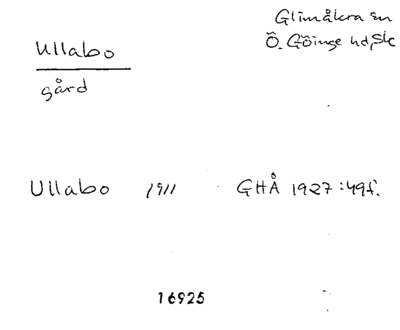 Glimåkra sn
Ö. Göinge hd, Sk
Ullabo
gård
Ullabo 1911 GHÅ 1927:49f.
16925